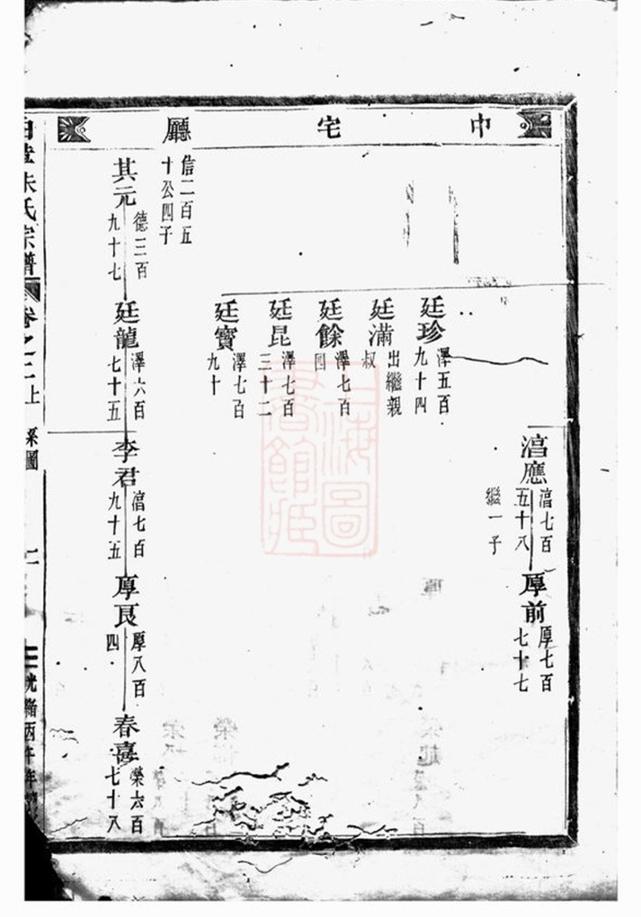 中宅廳
淐應
淐七百
五十八
繼一子
厚前
厚七百
七十七
廷珍
澤五百
九十四
廷滿
出繼親
叔
廷餘
澤七百
四
廷昆
澤七百
三十二
廷寶
澤七百
九十
信二百五
十公四子
其元
德三百
九十七
廷龍
澤六百
七十五
李君
淐七百
九十五
厚良
厚八百
四
春喜
榮六百
七十八
朱氏宗譜
卷之三上
系圖
光緒丙午年
上海圖書館藏